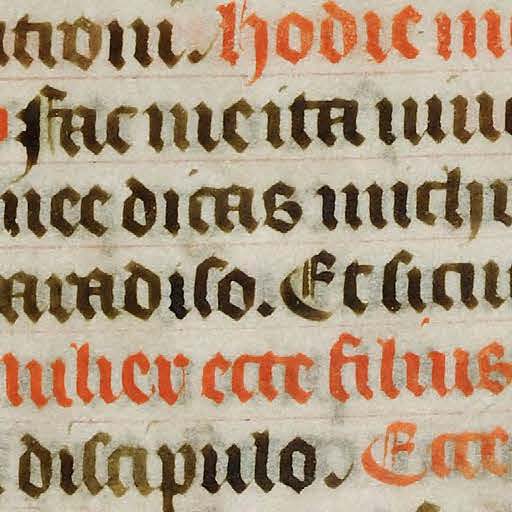 ationi. hodie me
fac me ita iuue
nec dicas michi
aradiso. Et sicut
mulier ecce filius
discipulo. Ecce